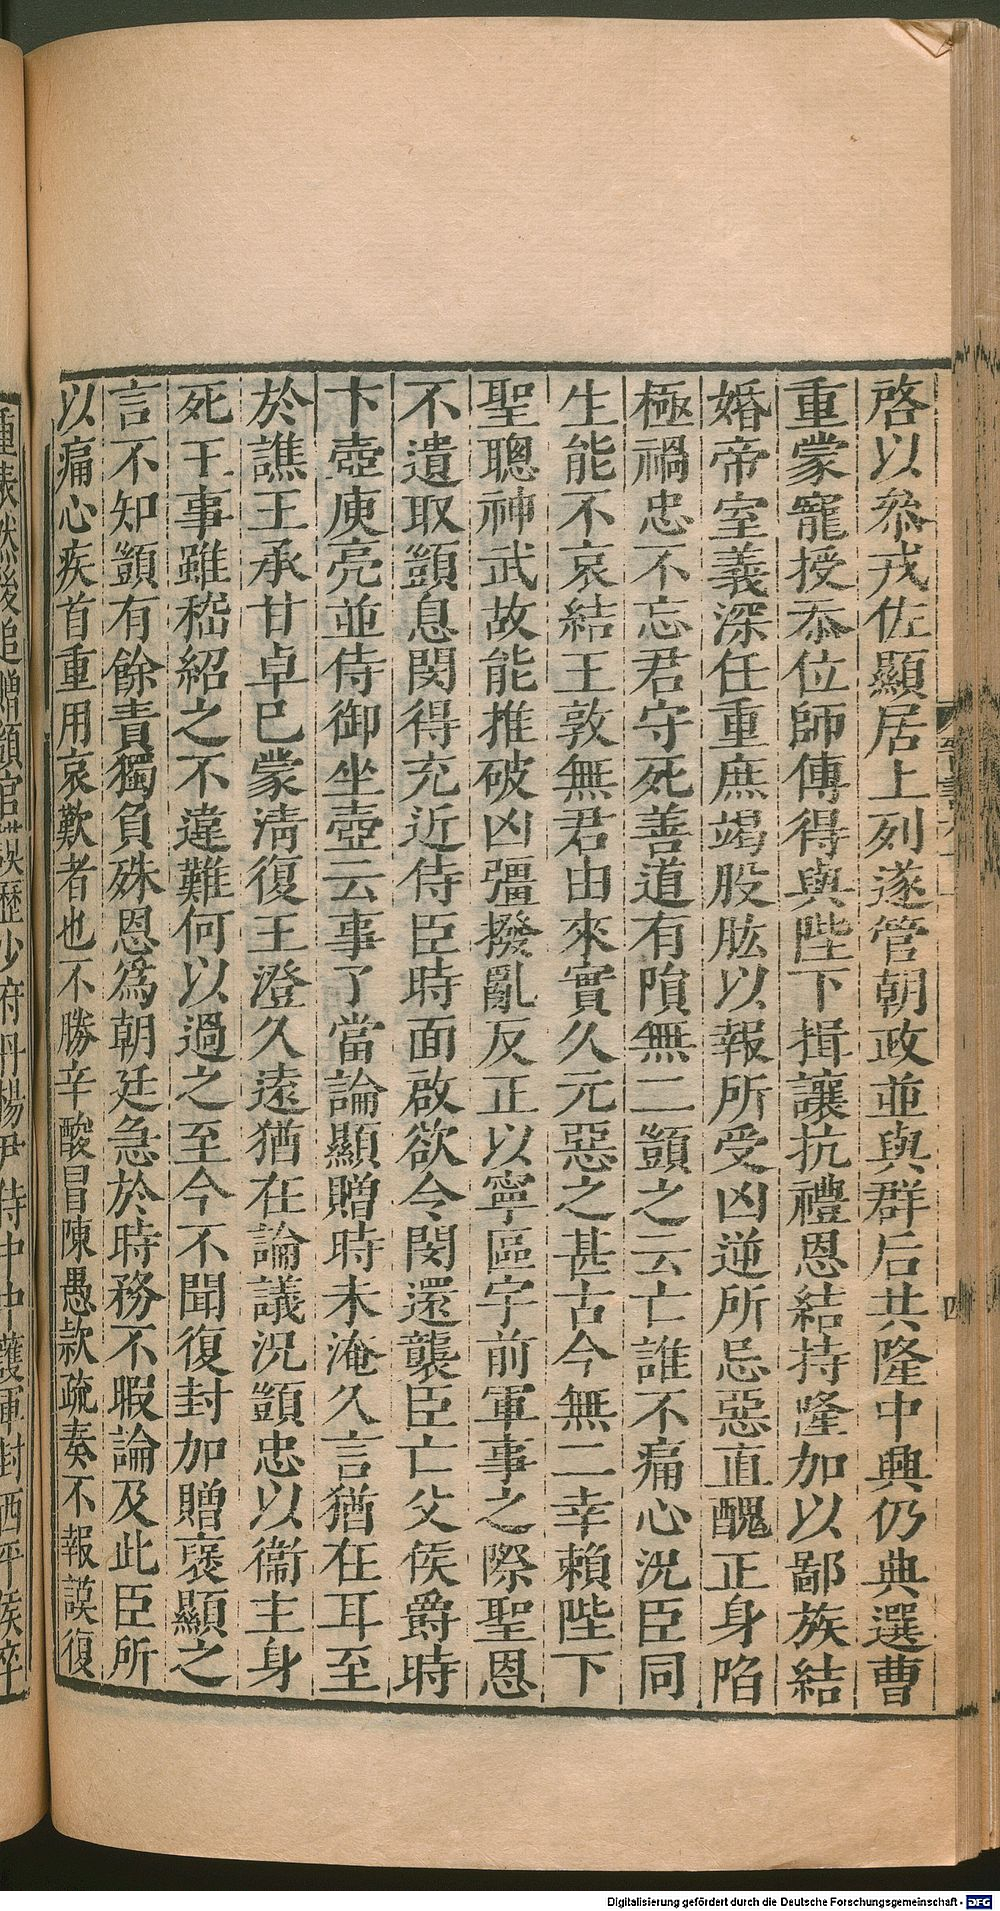 啓以叅戎佐顯居上列遂管朝政並與群后共隆中興仍典選曹
重蒙寵授忝位師傅得與陛下揖讓抗禮恩結持隆加以鄙族結
婚帝室義深任重庶竭股肱以報所受凶逆所忌惡直醜正身陷
極禍忠不忘君守死善道有隕無二顗之云亡誰不痛心況臣同
生能不哀結王敦無君由來實久元惡之甚古今無二幸賴陛下
聖聰神武故能推破凶彊撥亂反正以寧區宇前軍事之際聖恩
不遺取顗息閔得充近侍臣時面啟欲令閔還襲臣亡父侯爵時
卞壺庾亮並侍御坐壺云事了當論顯贈時未淹久言猶在耳至
於譙王承甘卓已蒙清復王澄久遠猶在論議況顗忠以衞主身
死王事雖嵇紹之不違難何以過之至今不聞復封加贈褒顯之
言不知顗有餘責獨負殊恩爲朝廷急於時務不暇論及此臣所
以痛心疾首重用哀歎者也不勝辛酸冒陳愚款疏奏不報謨復
重表然後追贈顗官謨歷少府丹楊尹侍中中護軍封西平侯卒
四
Digitalisierung gefördert durch die Deutsche Forschungsgemeinschaft - DFG